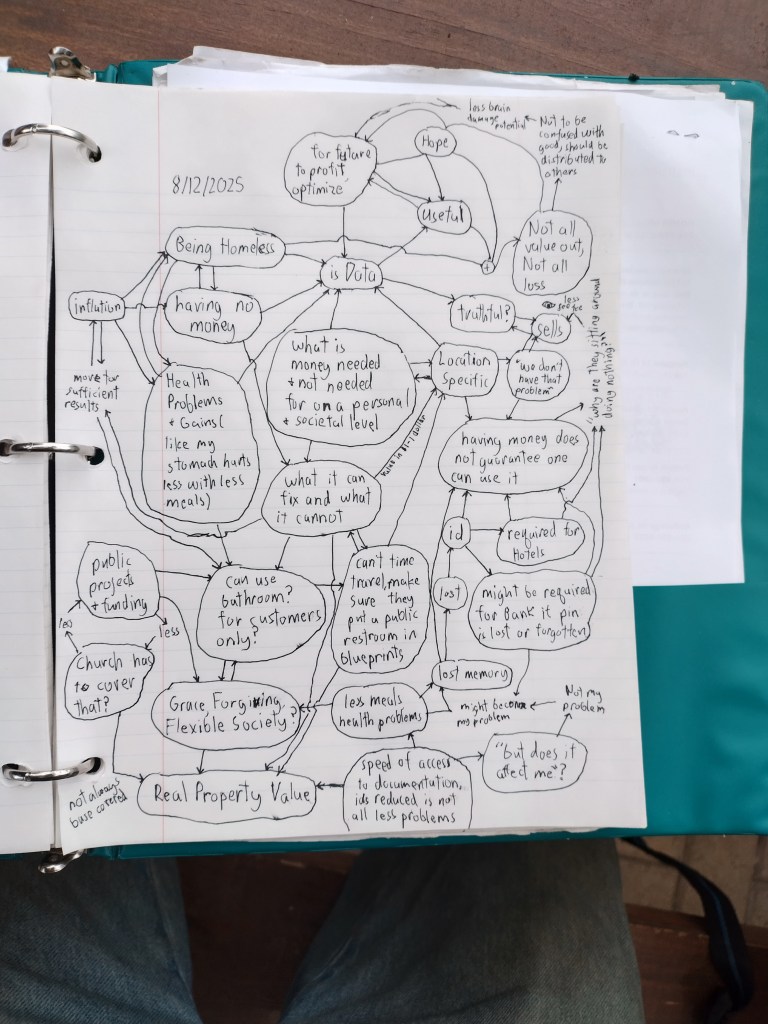 8/12/2025
for future
to profit
optimize
Hope
less brain
damage
potential
Not to be
confused with
good, should be
distributed to
others
useful
Not all
value out,
Not all
loss
+
Being Homeless
is Data
inflation
having no
money
truthful?
less
see fee
sells
"why are they sitting around
doing nothing?"
what is
money needed
+ not needed
for on a personal
+ societal level
Location
Specific
"we don't
have that
problem"
move for
sufficient
results
Health
Problems
+ Gains(
like my
stomach hurts
less with less
meals)
having money does
not guarantee one
can use it
what it can
fix and what
it cannot
id
required for
Hotels
public
projects
+ funding
can use
bathroom?
for customers
only?
can't time
travel, make
sure they
put a public
restroom in
blueprints
lost
might be required
for Bank if pin
is lost or forgotten
less
Church has
to cover
that?
lost memory
Grace, Forgiving,
Flexible Society?
less meals
health problems
might become
my problem
Not my
problem
"but does it
affect me"?
speed of access
to documentation,
ids reduced is not
all less problems
Real Property Value
not always
base covered